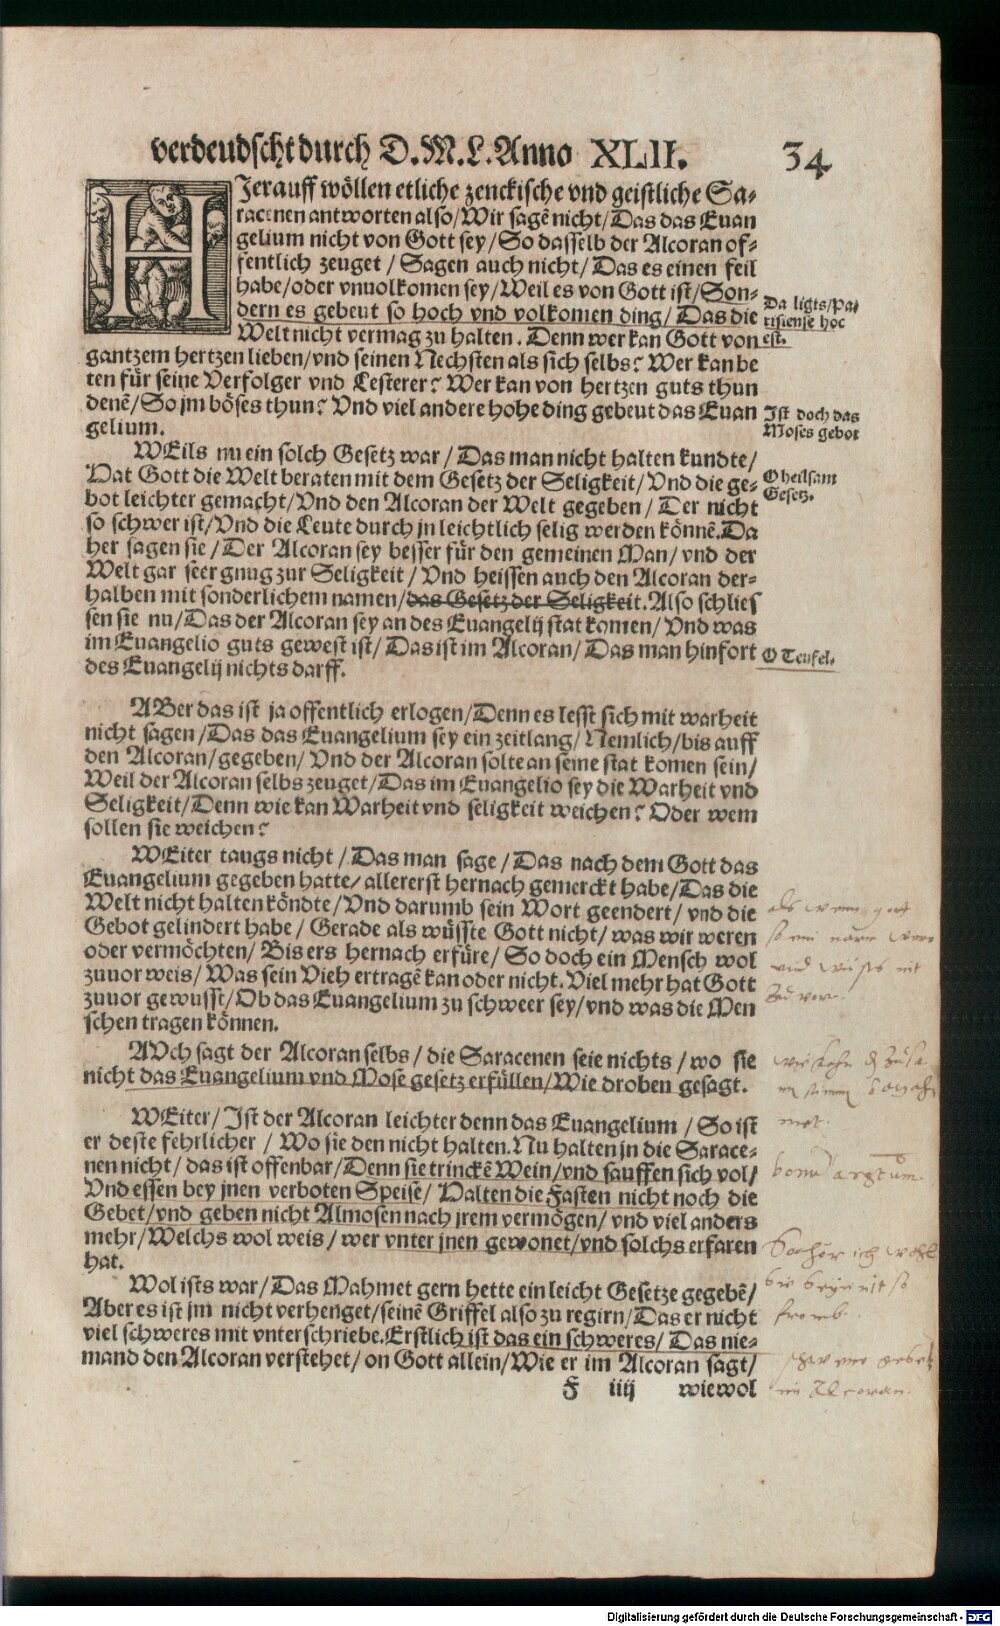 verdeudscht durch D. M. L. Anno XLII. 34
HJerauff wöllen etliche zenckische vnd geistliche Sa-
racenen antworten also/Wir sagē nicht/Das das Euan
gelium nicht von Gott sey/So dasselb der Alcoran of-
fentlich zeuget/Sagen auch nicht/Das es einen feil
habe/oder vnuolkomen sey/Weil es von Gott ist/Son-
dern es gebeut so hoch vnd volkomen ding/Das die
Welt nicht vermag zu halten. Denn wer kan Gott von
gantzem hertzen lieben/vnd seinen Nechsten als sich selbs? Wer kan be
ten für seine Verfolger vnd Lesterer? Wer kan von hertzen guts thun
denē/So jm böses thun? Vnd viel andere hohe ding gebeut das Euan
gelium.
Da ligts/Pa/
risiense hoc
est.
Ist doch das
Moses gebot
WEils nu ein solch Gesetz war/Das man nicht halten kundte/
Hat Gott die Welt beraten mit dem Gesetz der Seligkeit/Vnd die ge-
bot leichter gemacht/Vnd den Alcoran der Welt gegeben/Der nicht
so schwer ist/Vnd die Leute durch jn leichtlich selig werden könnē. Da
her sagen sie/Der Alcoran sey besser für den gemeinen Man/vnd der
Welt gar seer gnug zur Seligkeit/Vnd heissen auch den Alcoran der-
halben mit sonderlichem namen/das Gesetz der Seligkeit. Also schlies
sen sie nu/Das der Alcoran sey an des Euangelij stat komen/Vnd was
im Euangelio guts gewest ist/Das ist im Alcoran/Das man hinfort
des Euangelij nichts darff.
O heilsam
Gesetz.
O Teufel.
ABer das ist ja offentlich erlogen/Denn es lesst sich mit warheit
nicht sagen/Das das Euangelium sey ein zeitlang/Nemlich/bis auff
den Alcoran/gegeben/Vnd der Alcoran solte an seine stat komen sein/
Weil der Alcoran selbs zeuget/Das im Euangelio sey die Warheit vnd
Seligkeit/Denn wie kan Warheit vnd seligkeit weichen? Oder wem
sollen sie weichen?
WEiter taugs nicht/Das man sage/Das nach dem Gott das
Euangelium gegeben hatte/allererst hernach gemerckt habe/Das die
Welt nicht halten köndte/Vnd darumb sein Wort geendert/vnd die
Gebot gelindert habe/Gerade als wüsste Gott nicht/was wir weren
oder vermöchten/Bis ers hernach erfüre/So doch ein Mensch wol
zuuor weis/Was sein Vieh ertragē kan oder nicht. Viel mehr hat Gott
zuuor gewusst/Ob das Euangelium zu schweer sey/vnd was die Men
schen tragen können.
AVch sagt der Alcoran selbs/die Saracenen seie nichts/wo sie
nicht das Euangelium vnd Mose gesetz erfüllen/Wie droben gesagt.
WEiter/Ist der Alcoran leichter denn das Euangelium/So ist
er deste fehrlicher/Wo sie den nicht halten. Nu halten jn die Sarace-
nen nicht/das ist offenbar/Denn sie trinckē Wein/vnd sauffen sich vol/
Vnd essen bey jnen verboten Speise/Halten die Fasten nicht noch die
Gebet/vnd geben nicht Almosen nach jrem vermögen/vnd viel anders
mehr/Welchs wol weis/wer vnter jnen gewonet/vnd solchs erfaren
hat.
Wol ists war/Das Mahmet gern hette ein leicht Gesetze gegebē/
Aber es ist jm nicht verhenget/seinē Griffel also zu regirn/Das er nicht
viel schweres mit vnterschriebe. Erstlich ist das ein schweres/Das nie-
mand den Alcoran verstehet/on Gott allein/Wie er im Alcoran sagt/
F iiij wiewol
bonū argtum.
im Alcoran.
Digitalisierung gefördert durch die Deutsche Forschungsgemeinschaft - DFG